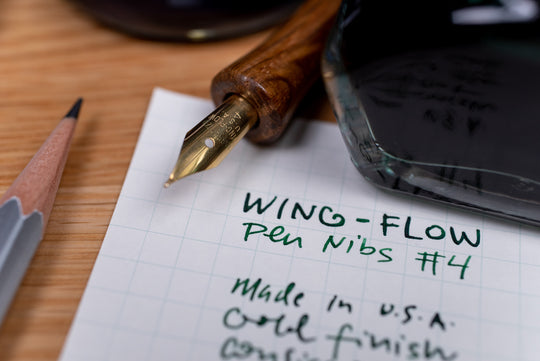 WING-FLOW
Pen Nibs #4
Made in U.S.A.
Gold finish